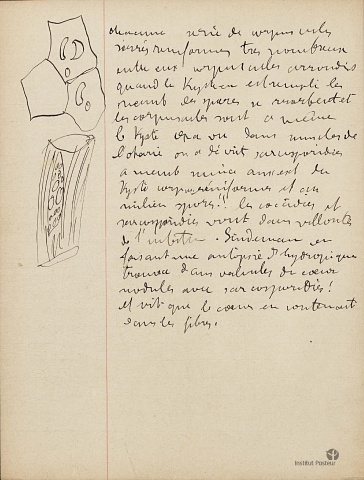 chacune série de corpuscules
serrés reniformes très nombreux
entre eux corpuscules arrondis
quand le Kyste est rempli les
spores se résorbent et
les corpuscules sont à même
le Kyste on a vu dans muscles de
l'otarie on a décrit sarcosporidies
a membr mince ayant du
Kyste corps réniformes et au
milieu spores!! les coccidies et
sarcosporidies vont dans villosité
de l'intestin. Sandeman en
faisant une autopsie d'hydropique
trouva dans valvules du cœur
nodules avec sarcosporidies!
et vit que le cœur en contenait
dans les fibres.
Institut Pasteur